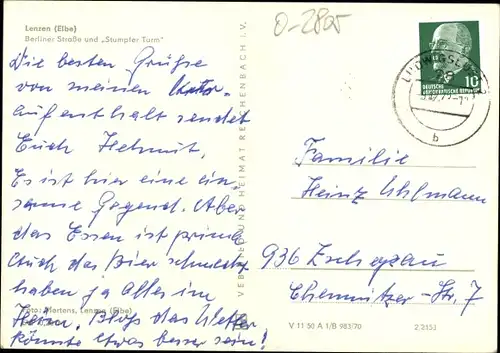 Lenzen (Elbe)
Berliner Straße und „Stumpfer Turm"
O-2805
LUDWIGSLUST
10
DEUTSCHE
DEMOKRATISCHE REPUBLIK
b
Die besten Grüße
von meinen Kurz-
aufenthalt sendet
Euch Helmut.
Es ist hier eine ein-
same Gegend. Aber
das Essen ist prima
Auch das Bier schmeckt
haben ja alles im
Heim. Blos das Wetter
könnte etwas besser sein!
Foto: Mertens, Lenzen (Elbe)
VEB BILD UND HEIMAT REICHENBACH I. V.
Familie
Heinz Uhlmann
936 Zschopau
Chemnitzer-Str. 7
V 11 50 A 1/B 983/70